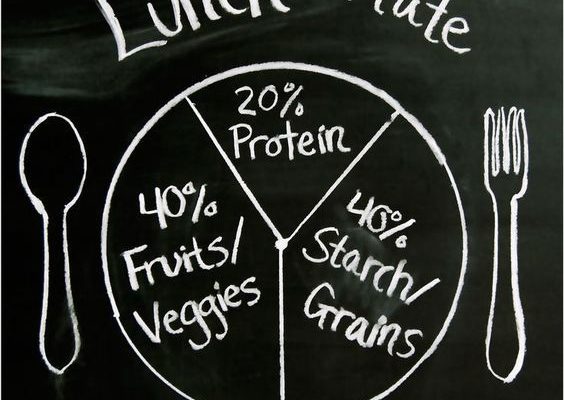 Lunch Plate
20%
Protein
40%
Fruits/
Veggies
40%
Starch/
Grains